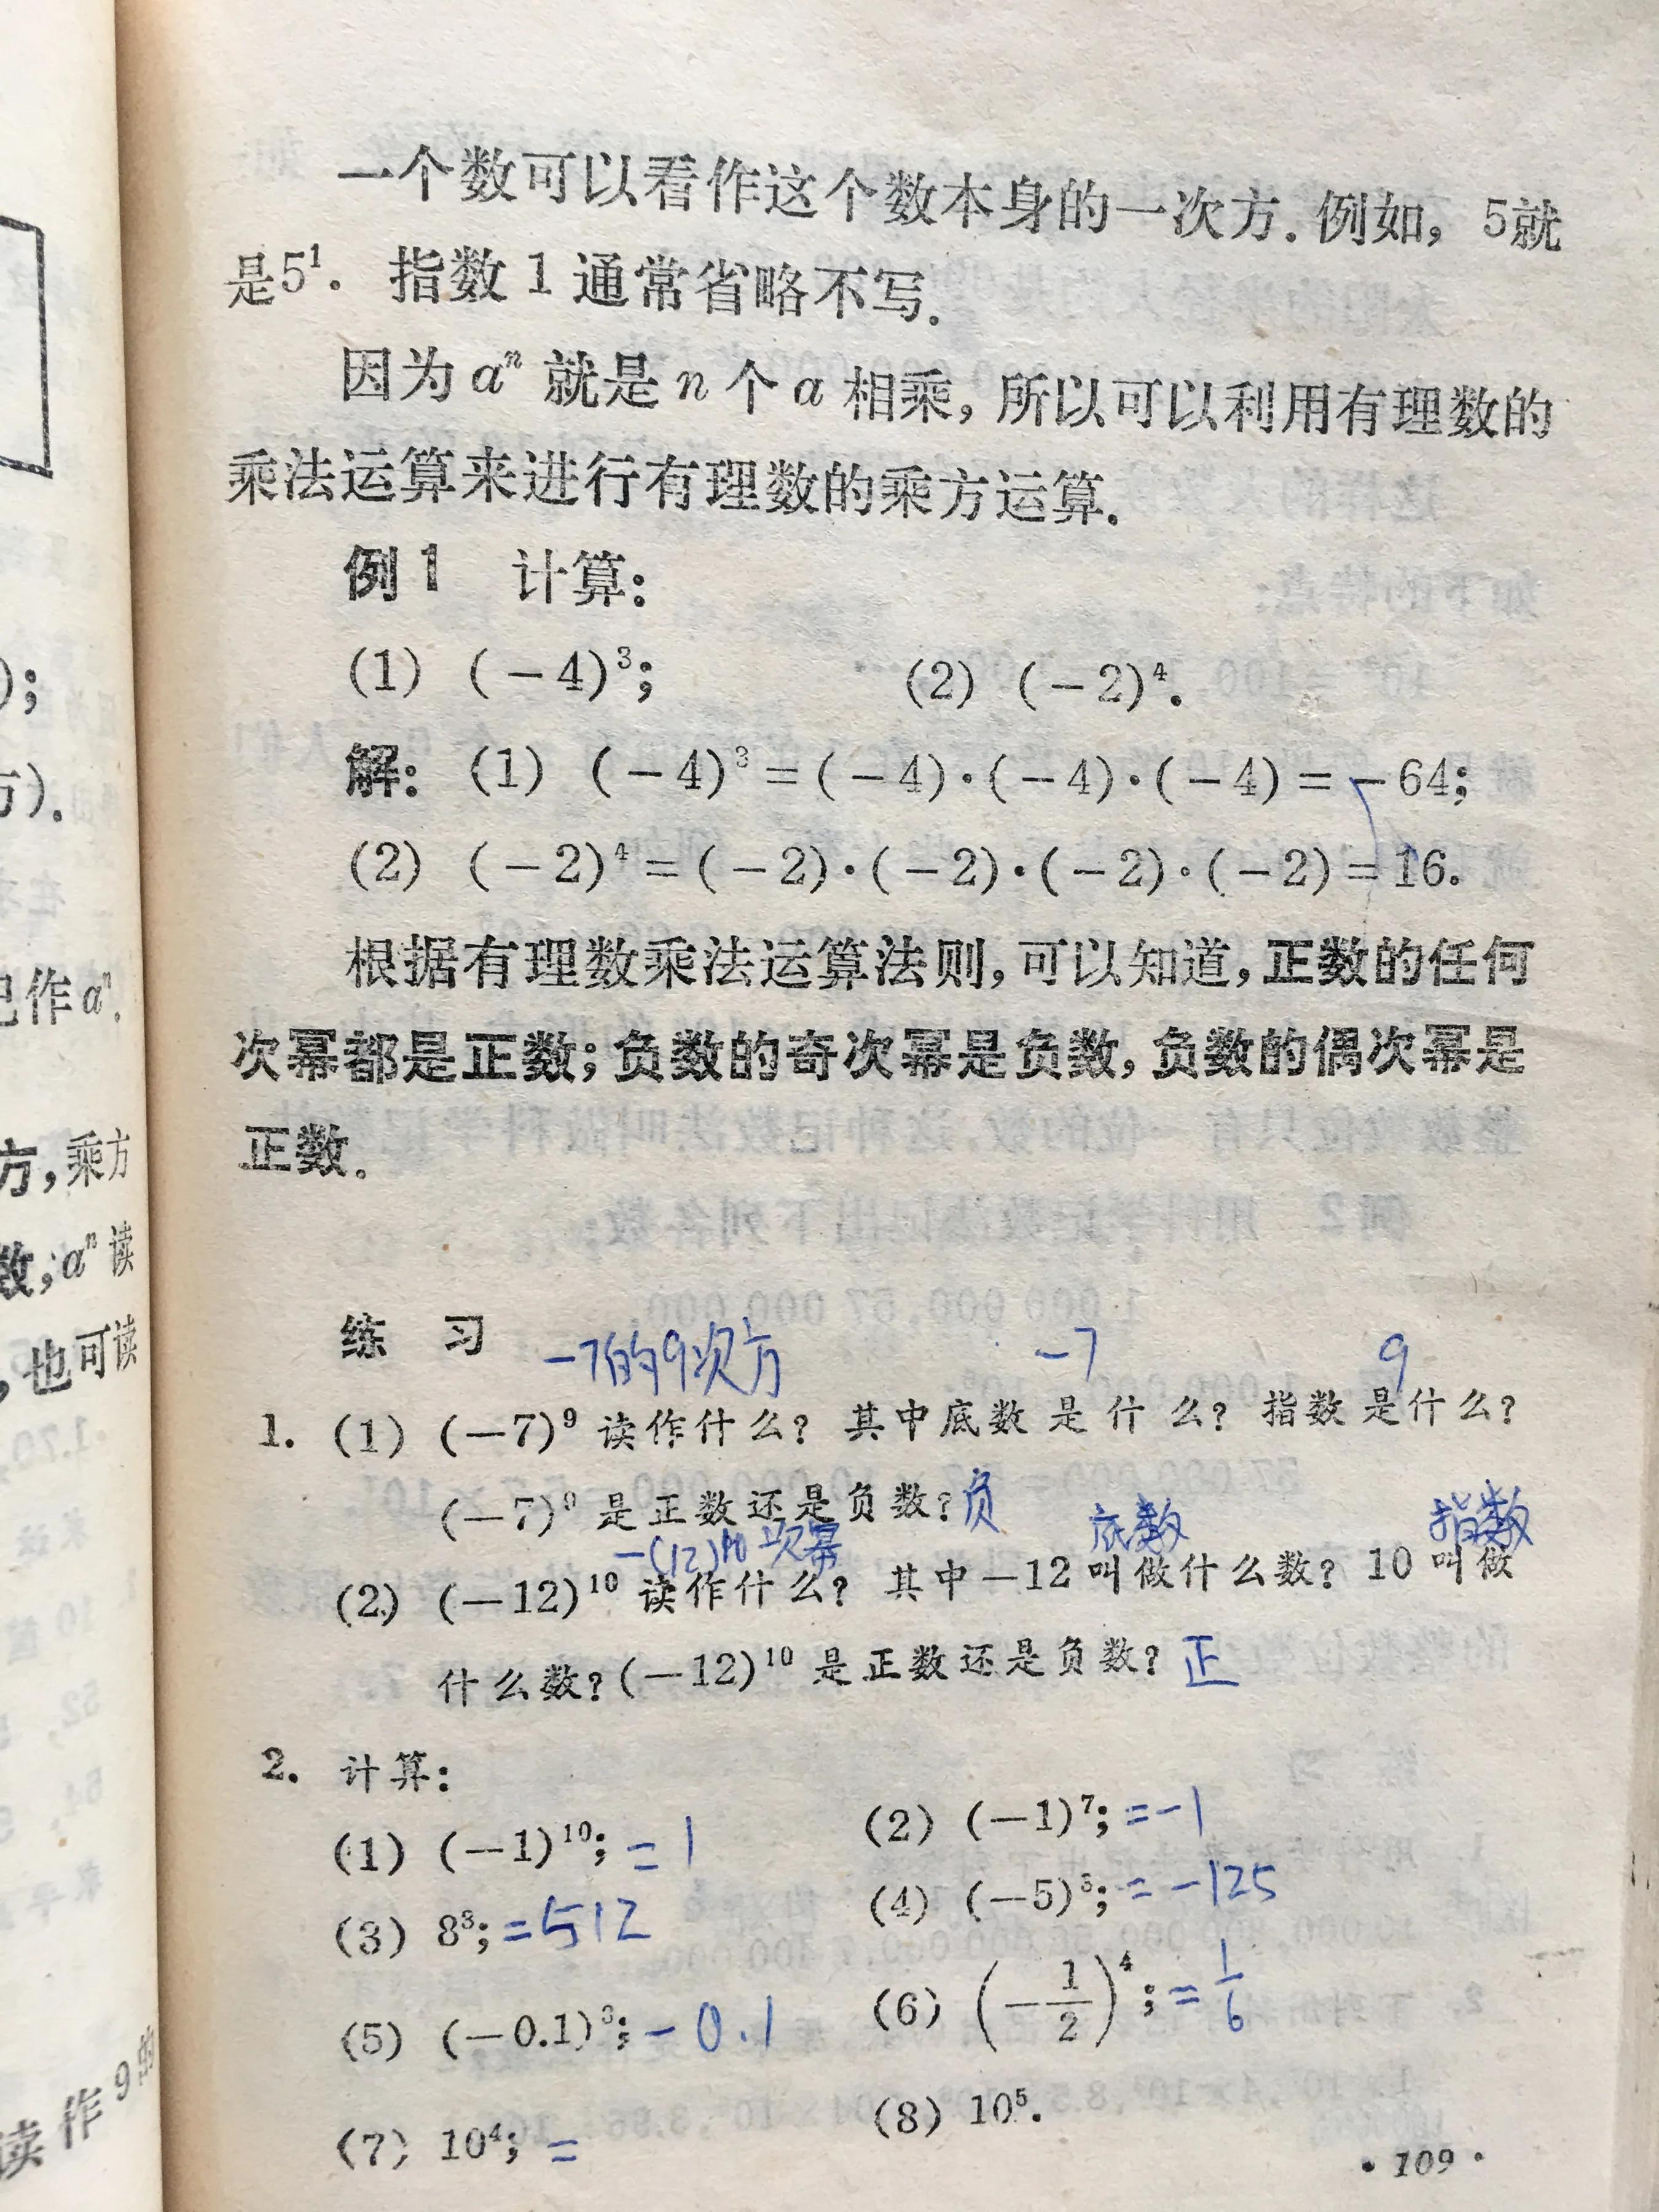 一个数可以看作这个数本身的一次方.例如, 5就
是5¹. 指数1通常省略不写.
因为aⁿ 就是n个a相乘, 所以可以利用有理数的
乘法运算来进行有理数的乘方运算.
例1 计算:
(1) (-4)³; (2) (-2)⁴.
解: (1) (-4)³=(-4)·(-4)·(-4)=-64;
(2) (-2)⁴=(-2)·(-2)·(-2)·(-2)=16.
根据有理数乘法运算法则,可以知道,正数的任何
次幂都是正数;负数的奇次幂是负数,负数的偶次幂是
正数.
练 习
-7的9次方 -7 9
1. (1) (-7)⁹ 读作什么? 其中底数是什么? 指数是什么?
(-7)⁹ 是正数还是负数?负
-(12)10次幂 底数 指数
(2) (-12)¹⁰ 读作什么? 其中-12叫做什么数? 10叫做
什么数?(-12)¹⁰ 是正数还是负数?正
2. 计算:
(1) (-1)¹⁰; =1 (2) (-1)⁷; =-1
(3) 8³; =512 (4) (-5)³; =-125
(5) (-0.1)³; -0.1 (6) (-1/2)⁴; =1/6
(7) 10⁴; = (8) 10⁵.
·109·
);
方).
记作aⁿ.
方,乘方
数;aⁿ读
,也可读
读作9的